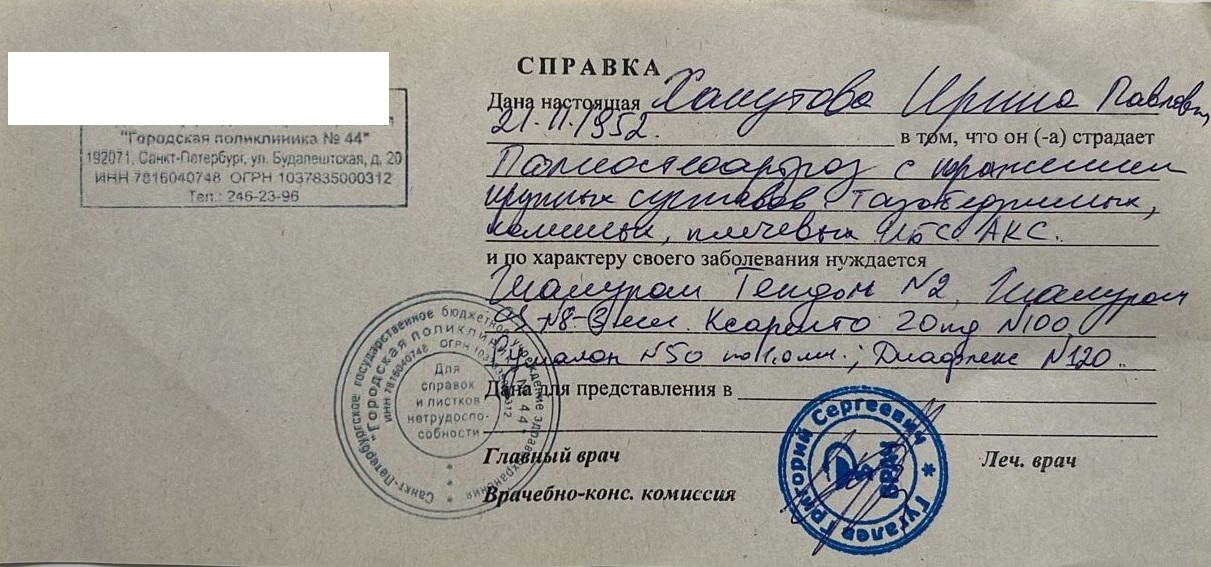 "Городская поликлиника № 44"
192071, Санкт-Петербург, ул. Будапештская, д. 20
ИНН 7816040748 ОГРН 1037835000312
Тел.: 246-23-96
СПРАВКА
Дана настоящая Хамутова Ирина Павловн
21.11.1952. в том, что он (-а) страдает
Полиостеоартроз с поражением
крупных суставов тазобедренных,
коленных, плечевых ИБС. АКС.
и по характеру своего заболевания нуждается
Тендон N2,
N8-3 мл. Ксарелто 20мg N100
Гумалон N50 по 1,0 мл.; Диафлекс N120.
Дана для представления в
Главный врач
Леч. врач
Врачебно-конс. комиссия
Санкт-Петербургское государственное бюджетное учреждение здравоохранения
"Городская поликлиника № 44"
ИНН 7816040748 ОГРН 1037835000312
Для
справок
и листков
нетрудоспо-
собности
Гугалев Григорий Сергеевич
врач